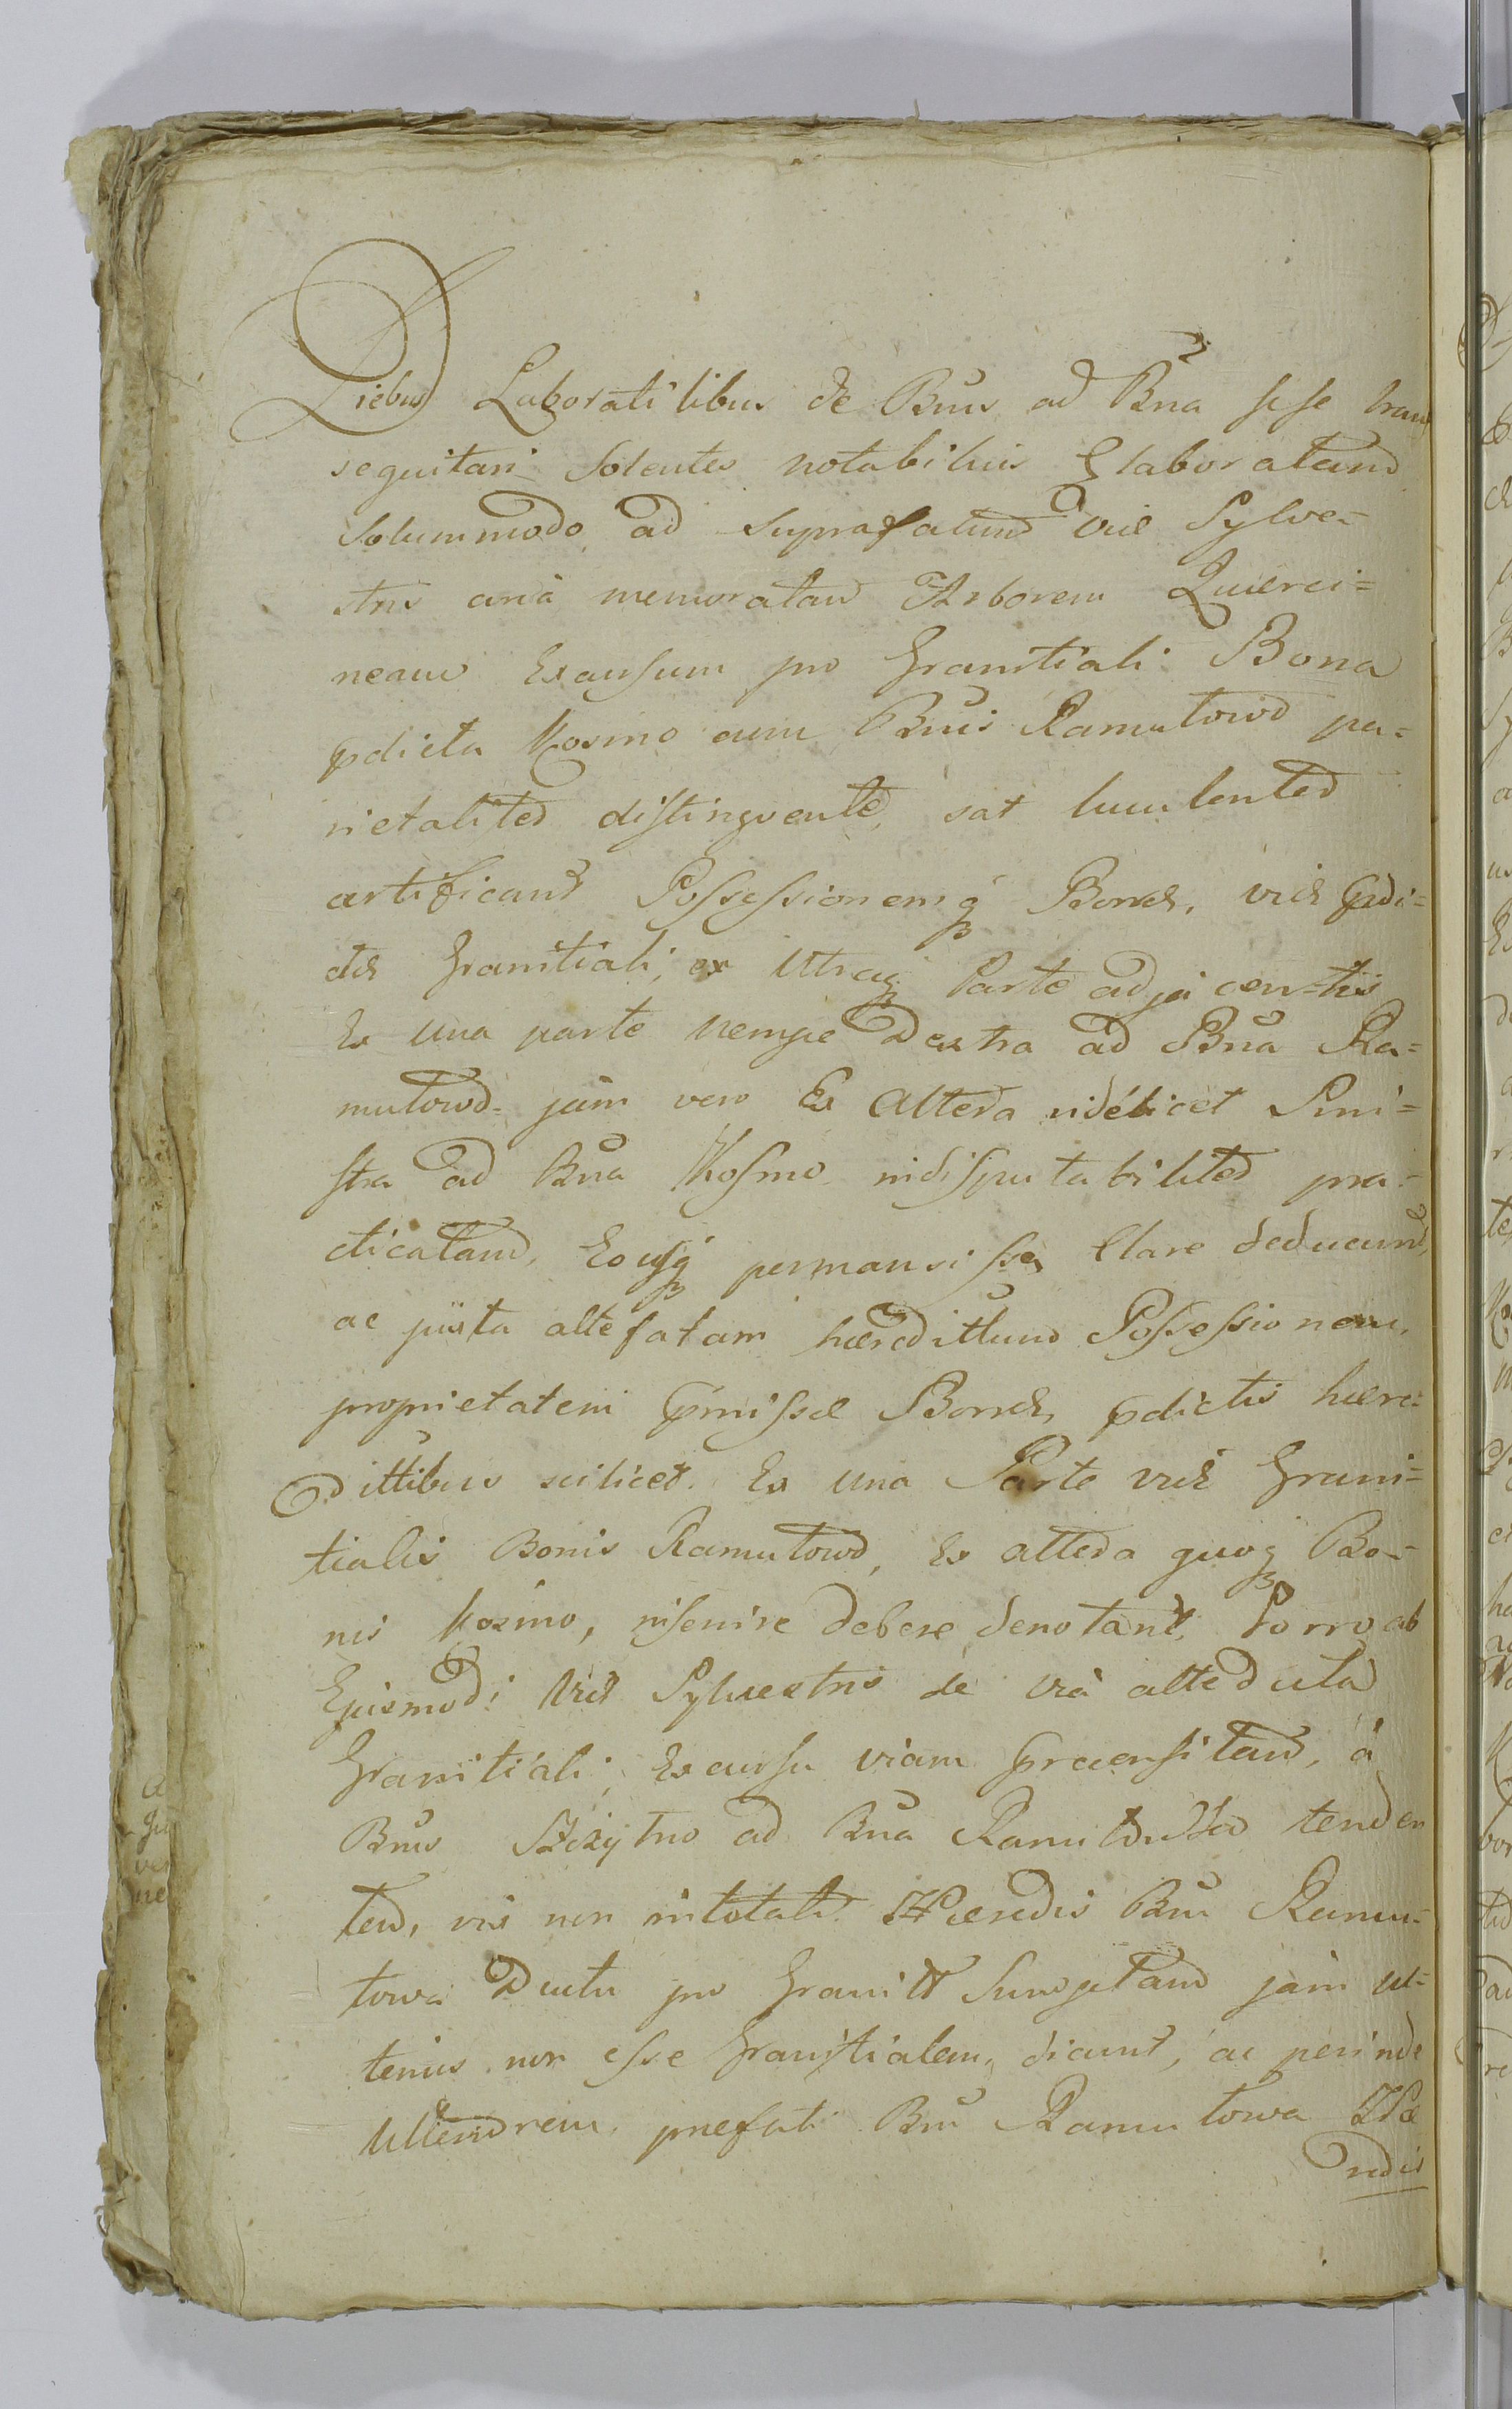 Diebus Laboratilibus de Bnis ad Bna sese trans
sequitari Solentes notabilius Elaboratam
Solummodo ad suprafatum viæ Sylve=
stris circa memoratam Arborem Querci=
neam Excursum pro Granitiali Bona
pdicta Kosmo cum Bnis Ramutowo pa=
rietaliter distinguente, sat luculenter
certificant Possessionemq Bonor, viæ prædi=
ctæ Granitiali, ex Utraq Parte adjacentis
Ex una parte nempe Dextra ad Bna Ra=
mutowo jam vero Ex Altera videlicet Sini=
stra ad Bna Kosmo indisputabiliter pra=
cticatam, Eousq permansisse, Clare deducunt,
ac juxta altefatam hæreditum Possessionem,
proprietatem præmissor Bonor, pdictis hære=
dittibus scilicet. Ex una Parte viæ Grani=
tialis Bonis Ramutowo, Ex altera quoq Bo=
nis Kosmo, inservire debere denotant. Porro ab
Ejusmodi Viæ Sylvestris de via alte dicta
Granitiali, Excursu viam præcensitam, à
Bnis Szczytno ad Bna Ramutowko tenden
tem, vis non intotali Hæredis Bnr Ramu=
towa Ductu pro Granitt Sumptam jam ul=
terius non esse Granitialem, dicunt, ac perinde
Ulteriorem præfati Bnr Ramutowa Hæ
redis